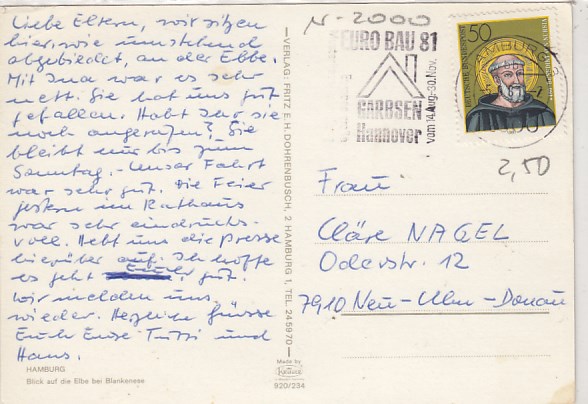 Liebe Eltern, wir sitzen
hier, wie umstehend
abgebildet, an der Elbe.
Mit Ina war es sehr
nett. Sie hat uns gut
gefallen. Habt Ihr sie
noch angerufen? Sie
bleibt nur bis zum
Sonntag. - Unser Fahrt
war sehr gut. Die Feier
gestern im Rathaus
war sehr eindrucks-
voll. Hebt uns die Presse
hierüber auf. Ich hoffe
es geht Euch gut.
Wir melden uns
wieder. Herzliche Grüsse
Eure Tutti und
Hans.
HAMBURG
Blick auf die Elbe bei Blankenese
VERLAG: FRITZ E. H. DOHRENBUSCH, 2 HAMBURG 1, TEL. 245970
Made by
Krüger
920/234
N-2000
EURO BAU 81
GARBSEN
Hannover
vom 14. Aug.-30. Nov.
50
DEUTSCHE BUNDESPOST
HAMBURG
2,50
Frau
Cläre NAGEL
Oderstr. 12
7910 Neu-Ulm-Donau